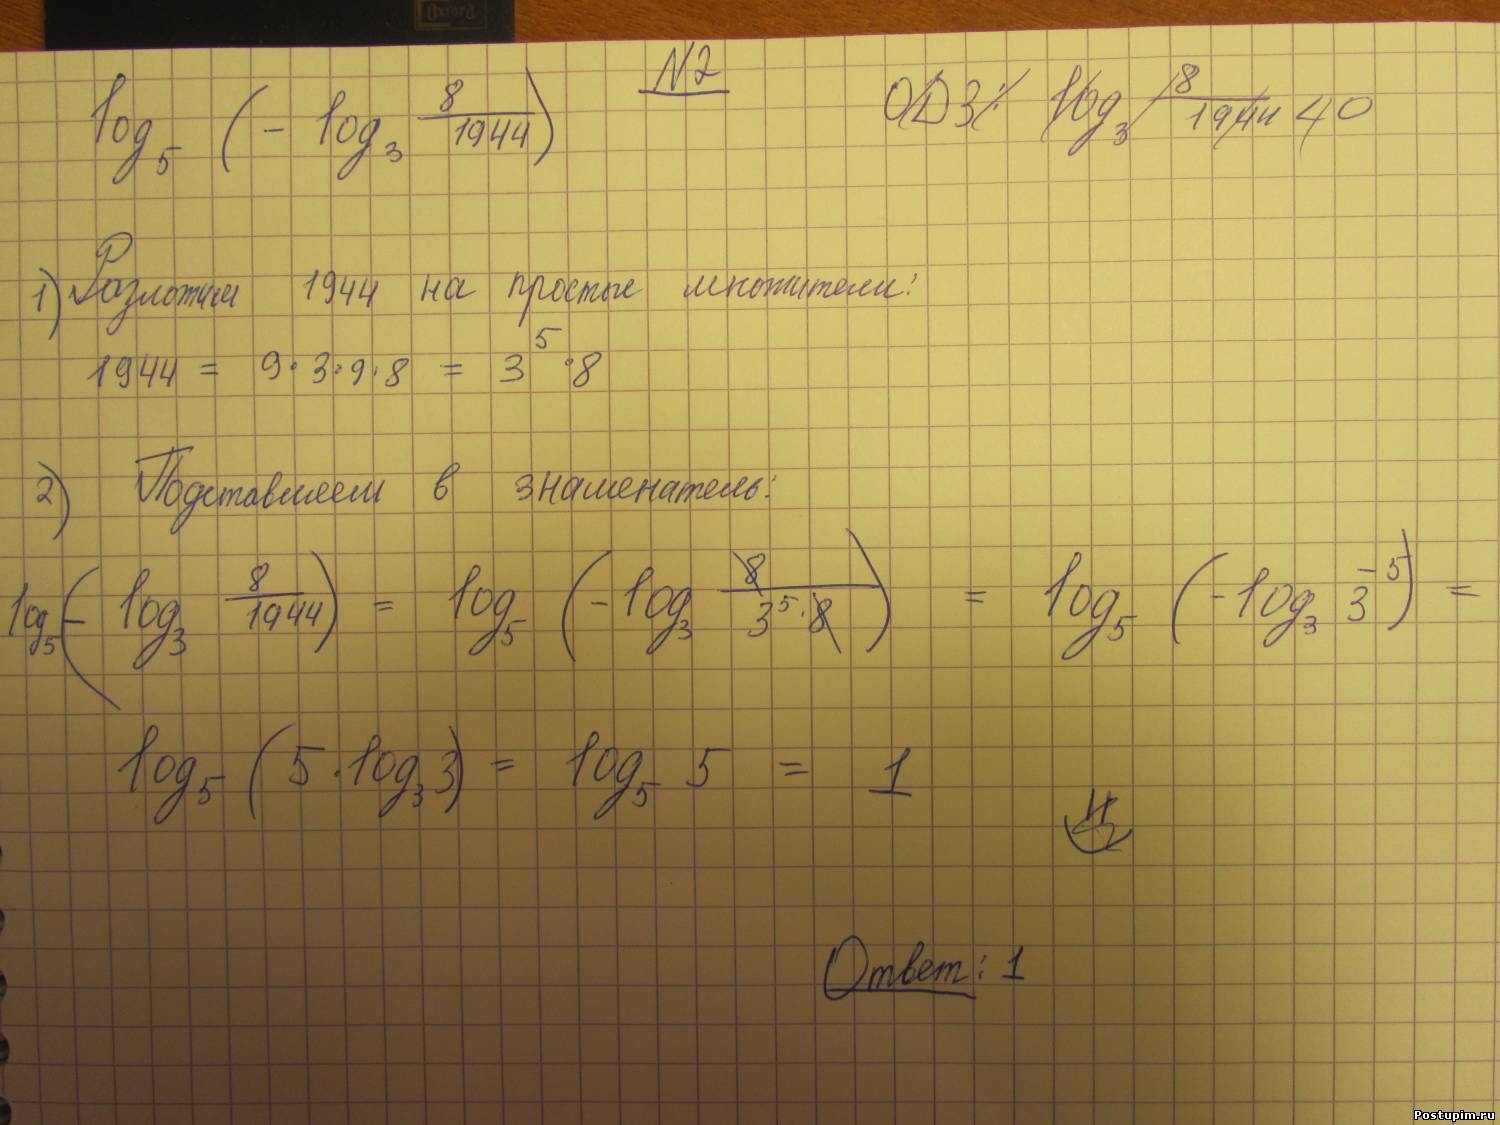 Oxford
N2
log₅ (- log₃ 8/1944)
ОДЗ: log₃ 8/1944 < 0
1) Разложим 1944 на простые множители:
1944 = 9·3·9·8 = 3⁵·8
2) Подставляем в знаменатель:
log₅(- log₃ 8/1944) = log₅ (- log₃ 8/3⁵·8) = log₅ (- log₃ 3⁻⁵) =
log₅ (5·log₃3) = log₅ 5 = 1
Ответ: 1
Postupim.ru